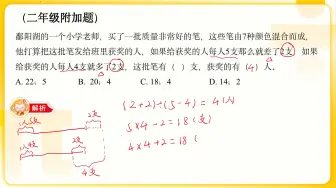 （二年级附加题）
鄱阳湖的一个小学老师，买了一批质量非常好的笔，这些笔由7种颜色混合而成，
他打算把这批笔发给班里获奖的人，如果给获奖的人每人5支那么就差了2支，如果
给获奖的人每人4支就多了2支，这批笔有（ ）支，获奖的有（4）人。
A. 22；5 B. 20；4 C. 18；4 D. 14；2
解析
(2+2)÷(5-4)=4(人)
5×4-2=18(支)
4×4+2=18(
1人5支 2支
1人4支 2支
4支